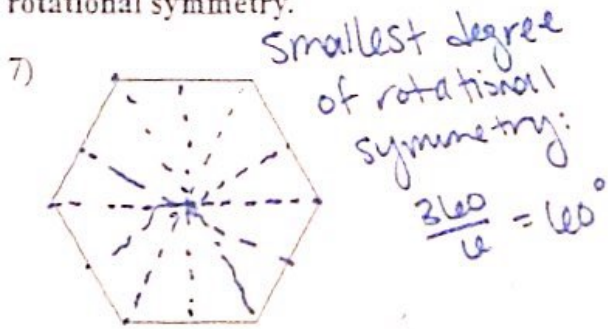 rotational symmetry.
7)
Smallest degree
of rotational
symmetry:
360/6 = 60°